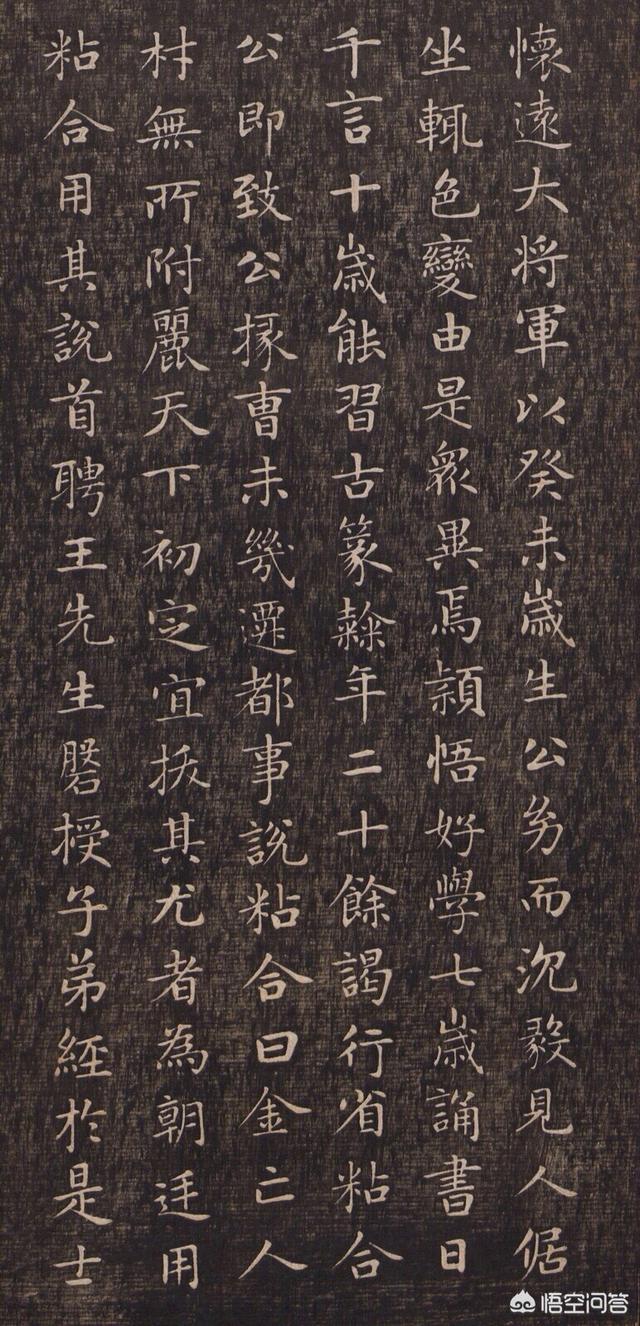 懷遠大将軍以癸未歳生公㓜而沉毅見人倨
坐輙色變由是眾異焉頴悟好學七歳誦書日
千言十歳能習古篆韓年二十餘謁行省粘合
公即致公掾曹未幾遷都事說粘合曰金亡人
材無所附麗天下初定宜拔其尤者為朝廷用
粘合用其說首聘王先生磐授子弟經於是士
悟空问答